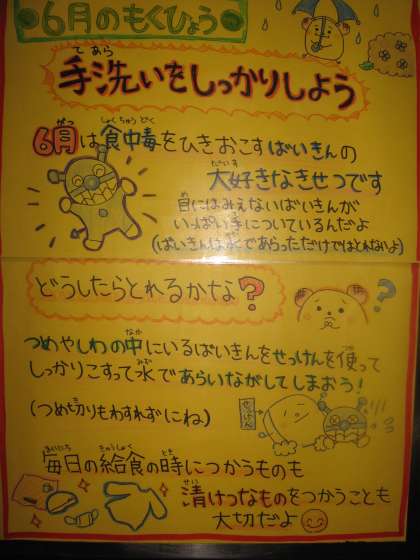 6月のもくひょう
てあら
手洗いをしっかりしよう
がつ しょくちゅうどく
6月は食中毒をひきおこすばいきんの
だいす
大好きなきせつです
め
目にはみえないばいきんが
て
いっぱい手についているんだよ
(ばいきんは水であらっただけではとれないよ)
どうしたらとれるかな?
?
なか つか
つめやしわの中にいるばいきんをせっけんを使って
みず
しっかりこすって水であらいながしてしまおう!
(つめ切りもわすれずにね)
せっけん
まいにち きゅうしょく とき
毎日の給食の時につかうものも
清けつなものをつかうことも
大切だよ